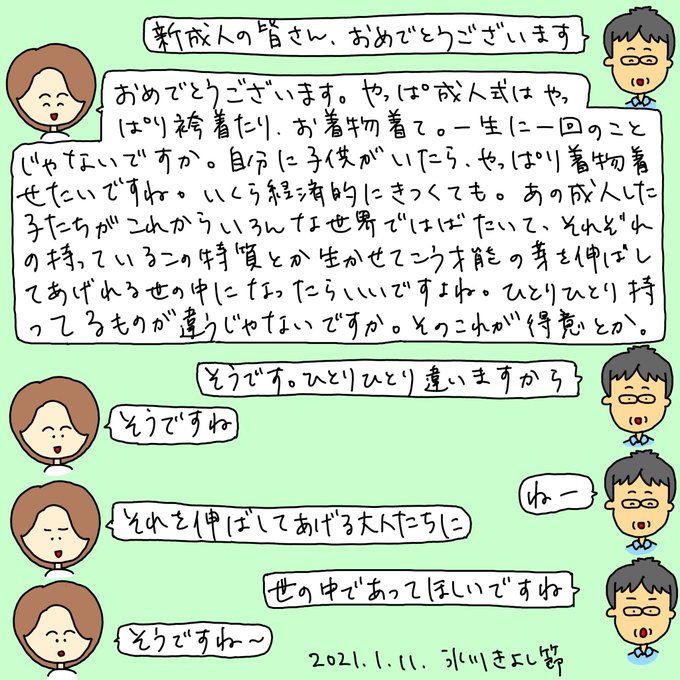 新成人の皆さん、おめでとうございます
おめでとうございます。やっぱ成人式はやっ
ぱり袴着たり、お着物着て。一生に一回のこと
じゃないですか。自分に子供がいたら、やっぱり着物着
せたいですね。いくら経済的にきつくても。あの成人した
子たちがこれからいろんな世界ではばたいて、それぞれ
の持っているこの特質とか生かせてこう才能の芽を伸ばし
てあげれる世の中になったらいいですよね。ひとりひとり持
ってるものが違うじゃないですか。そのこれが得意とか。
そうです。ひとりひとり違いますから
そうですね
ねー
それを伸ばしてあげる大人たちに
世の中であってほしいですね
そうですね～
2021.1.11. 氷川きよし節